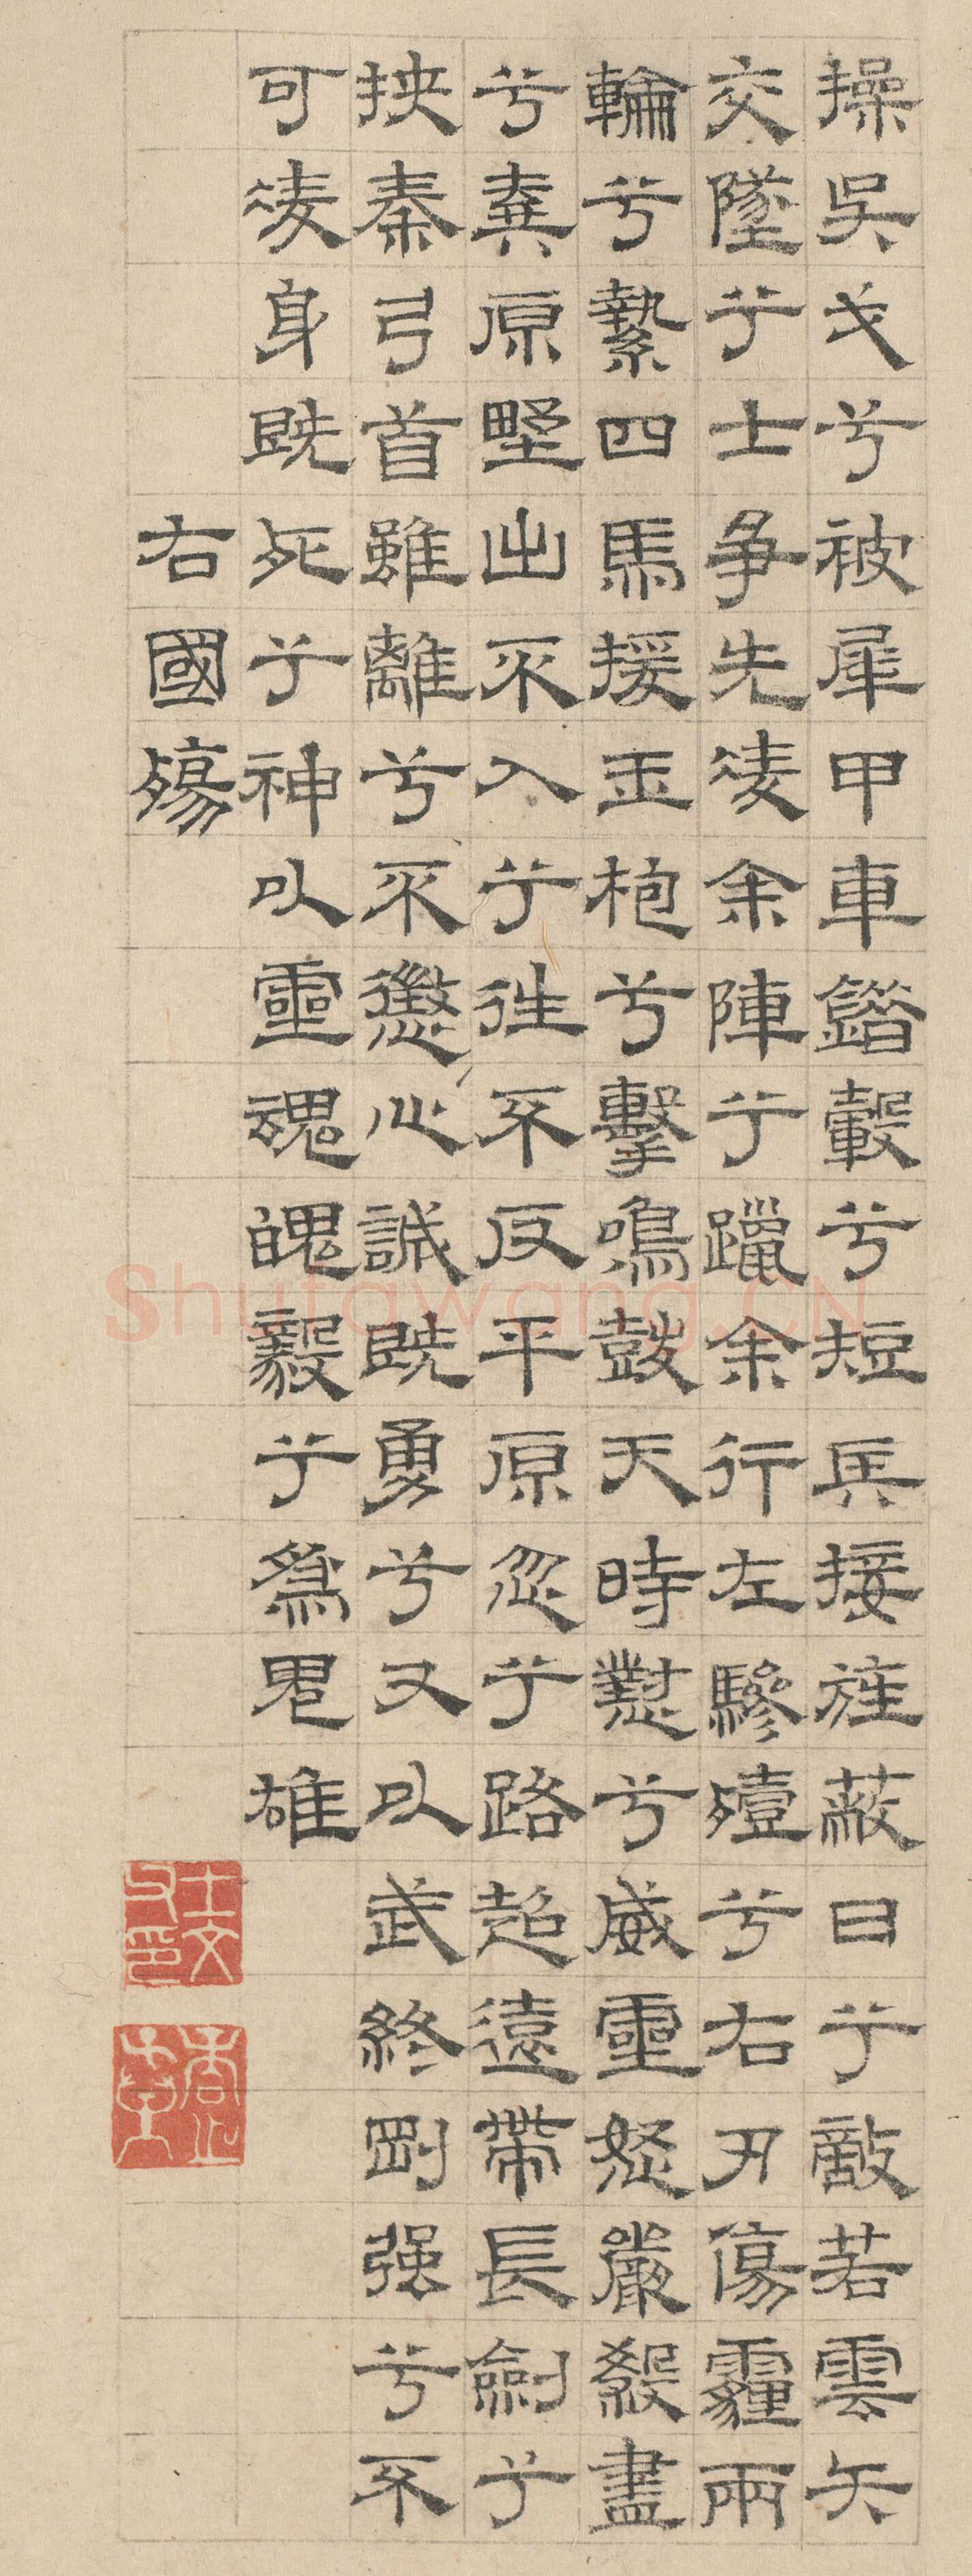 操吳戈兮被犀甲車錯轂兮短兵接旌蔽日兮敵若雲矢
交墜兮士争先凌余陣兮躐余行左驂殪兮右刃傷霾兩
輪兮縶四馬援玉枹兮擊鳴鼓天時懟兮威靈怒嚴殺盡
兮棄原壄出不入兮往不反平原忽兮路超遠帶長劍兮
挾秦弓首雖離兮不懲心誠既勇兮又以武終剛强兮不
可凌身既死兮神以靈魂魄毅兮為鬼雄
右國殤
Shufawang.CN